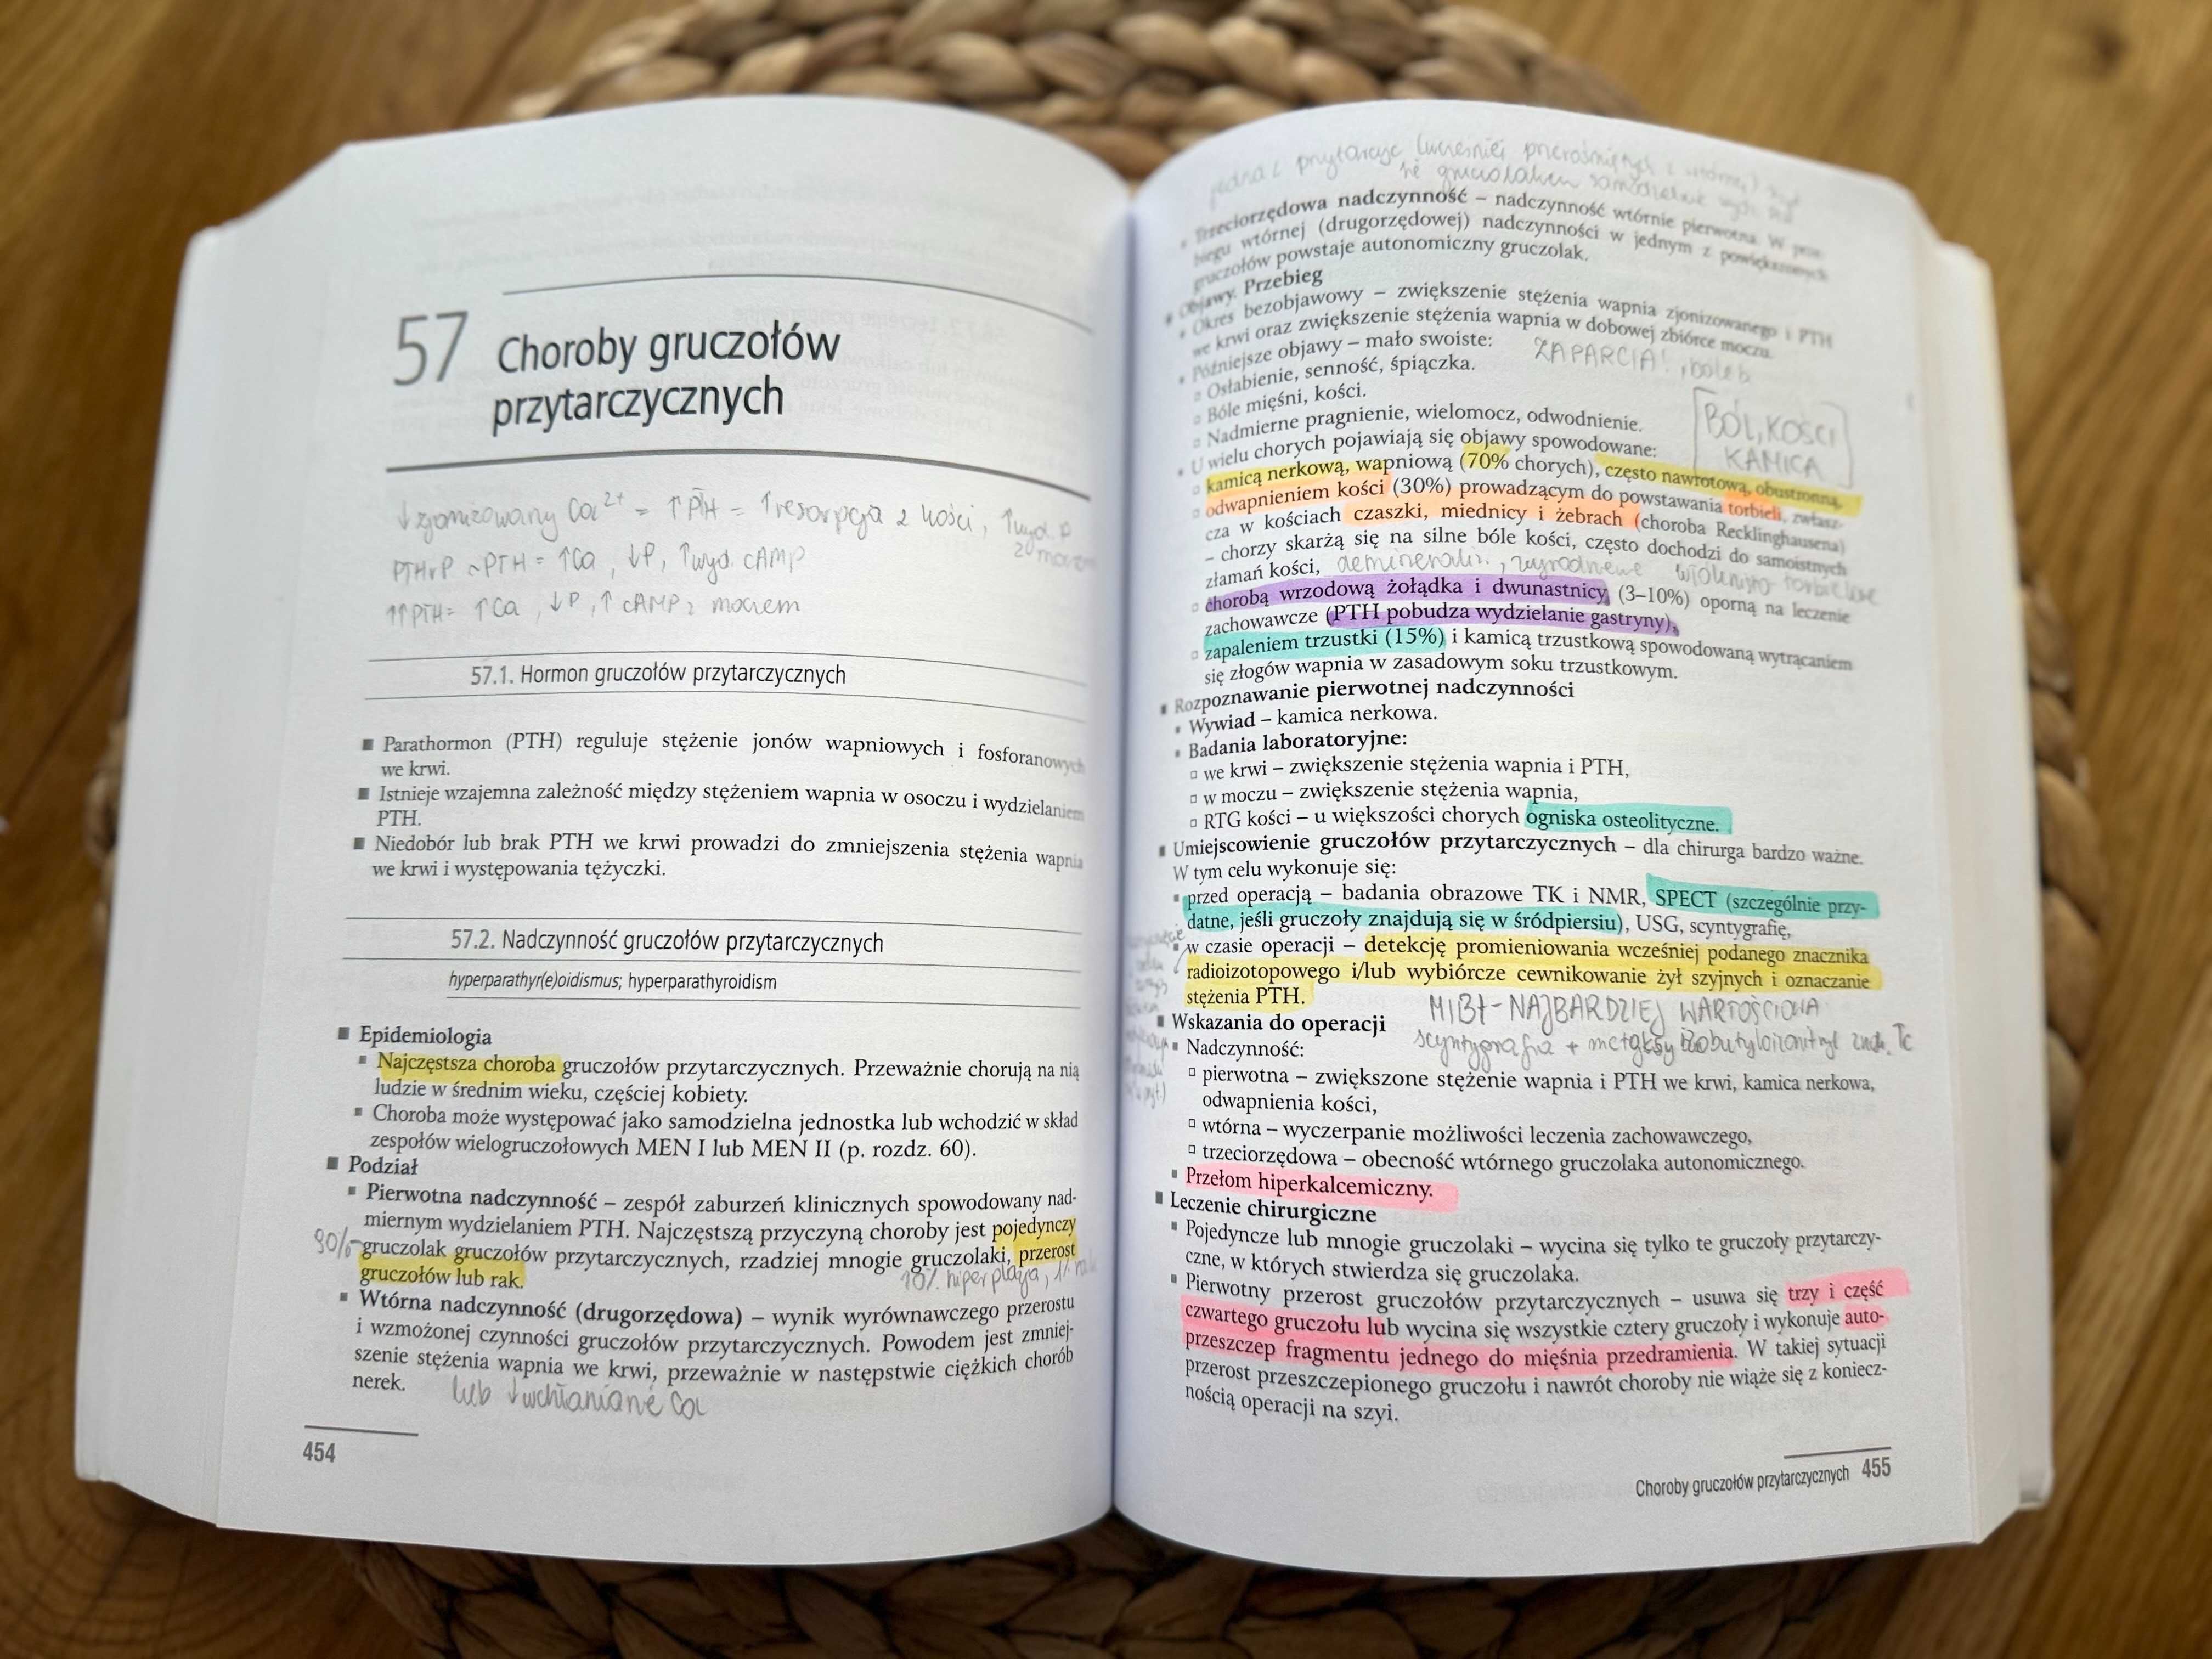 57 Choroby gruczołów
przytarczycznych
↓ zjonizowany Ca²⁺ = ↑PTH = ↑resorpcja z kości, ↑wyd. P
z moczem
PTHrP ~PTH = ↑Ca, ↓P, ↑wyd. cAMP
↑↑PTH = ↑Ca, ↓P, ↑cAMP z moczem
57.1. Hormon gruczołów przytarczycznych
■ Parathormon (PTH) reguluje stężenie jonów wapniowych i fosforanowych
we krwi.
■ Istnieje wzajemna zależność między stężeniem wapnia w osoczu i wydzielaniem
PTH.
■ Niedobór lub brak PTH we krwi prowadzi do zmniejszenia stężenia wapnia
we krwi i występowania tężyczki.
57.2. Nadczynność gruczołów przytarczycznych
hyperparathyr(e)oidismus; hyperparathyroidism
■ Epidemiologia
▪ Najczęstsza choroba gruczołów przytarczycznych. Przeważnie chorują na nią
ludzie w średnim wieku, częściej kobiety.
▪ Choroba może występować jako samodzielna jednostka lub wchodzić w skład
zespołów wielogruczołowych MEN I lub MEN II (p. rozdz. 60).
■ Podział
▪ Pierwotna nadczynność – zespół zaburzeń klinicznych spowodowany nad-
miernym wydzielaniem PTH. Najczęstszą przyczyną choroby jest pojedynczy
90% gruczolak gruczołów przytarczycznych, rzadziej mnogie gruczolaki, przerost
gruczołów lub rak. 10% hiperplazja, 1%
▪ Wtórna nadczynność (drugorzędowa) – wynik wyrównawczego przerostu
i wzmożonej czynności gruczołów przytarczycznych. Powodem jest zmniej-
szenie stężenia wapnia we krwi, przeważnie w następstwie ciężkich chorób
nerek. lub ↓wchłanianie Ca
454
jedna z przytarczyc (wcześniej przerośniętych z wtórnej)
gruczolakiem
▪ Trzeciorzędowa nadczynność – nadczynność wtórnie pierwotna. W prze-
biegu wtórnej (drugorzędowej) nadczynności w jednym z powiększonych
gruczołów powstaje autonomiczny gruczolak.
■ Objawy. Przebieg
▪ Okres bezobjawowy – zwiększenie stężenia wapnia zjonizowanego i PTH
we krwi oraz zwiększenie stężenia wapnia w dobowej zbiórce moczu.
▪ Późniejsze objawy – mało swoiste: ZAPARCIA!
▫ Osłabienie, senność, śpiączka.
▫ Bóle mięśni, kości.
▫ Nadmierne pragnienie, wielomocz, odwodnienie.
[BÓL, KOŚCI
KAMICA]
▪ U wielu chorych pojawiają się objawy spowodowane:
▫ kamicą nerkową, wapniową (70% chorych), często nawrotową, obustronną,
▫ odwapnieniem kości (30%) prowadzącym do powstawania torbieli, zwłasz-
cza w kościach czaszki, miednicy i żebrach (choroba Recklinghausena)
– chorzy skarżą się na silne bóle kości, często dochodzi do samoistnych
złamań kości, demineraliz., zwyrodnienie włóknisto torbielowe
▫ chorobą wrzodową żołądka i dwunastnicy (3–10%) oporną na leczenie
zachowawcze (PTH pobudza wydzielanie gastryny),
▫ zapaleniem trzustki (15%) i kamicą trzustkową spowodowaną wytrącaniem
się złogów wapnia w zasadowym soku trzustkowym.
■ Rozpoznawanie pierwotnej nadczynności
▪ Wywiad – kamica nerkowa.
▪ Badania laboratoryjne:
▫ we krwi – zwiększenie stężenia wapnia i PTH,
▫ w moczu – zwiększenie stężenia wapnia,
▫ RTG kości – u większości chorych ogniska osteolityczne.
■ Umiejscowienie gruczołów przytarczycznych – dla chirurga bardzo ważne.
W tym celu wykonuje się:
▪ przed operacją – badania obrazowe TK i NMR, SPECT (szczególnie przy-
datne, jeśli gruczoły znajdują się w śródpiersiu), USG, scyntygrafię,
▪ w czasie operacji – detekcję promieniowania wcześniej podanego znacznika
radioizotopowego i/lub wybiórcze cewnikowanie żył szyjnych i oznaczanie
stężenia PTH.
MIBI - NAJBARDZIEJ WARTOŚCIOWA
■ Wskazania do operacji
scyntygrafia + znak. Tc
▪ Nadczynność:
▫ pierwotna – zwiększone stężenie wapnia i PTH we krwi, kamica nerkowa,
odwapnienia kości,
▫ wtórna – wyczerpanie możliwości leczenia zachowawczego,
▫ trzeciorzędowa – obecność wtórnego gruczolaka autonomicznego.
▪ Przełom hiperkalcemiczny.
■ Leczenie chirurgiczne
▪ Pojedyncze lub mnogie gruczolaki – wycina się tylko te gruczoły przytarczy-
czne, w których stwierdza się gruczolaka.
▪ Pierwotny przerost gruczołów przytarczycznych – usuwa się trzy i część
czwartego gruczołu lub wycina się wszystkie cztery gruczoły i wykonuje auto-
przeszczep fragmentu jednego do mięśnia przedramienia. W takiej sytuacji
przerost przeszczepionego gruczołu i nawrót choroby nie wiąże się z koniecz-
nością operacji na szyi.
Choroby gruczołów przytarczycznych 455